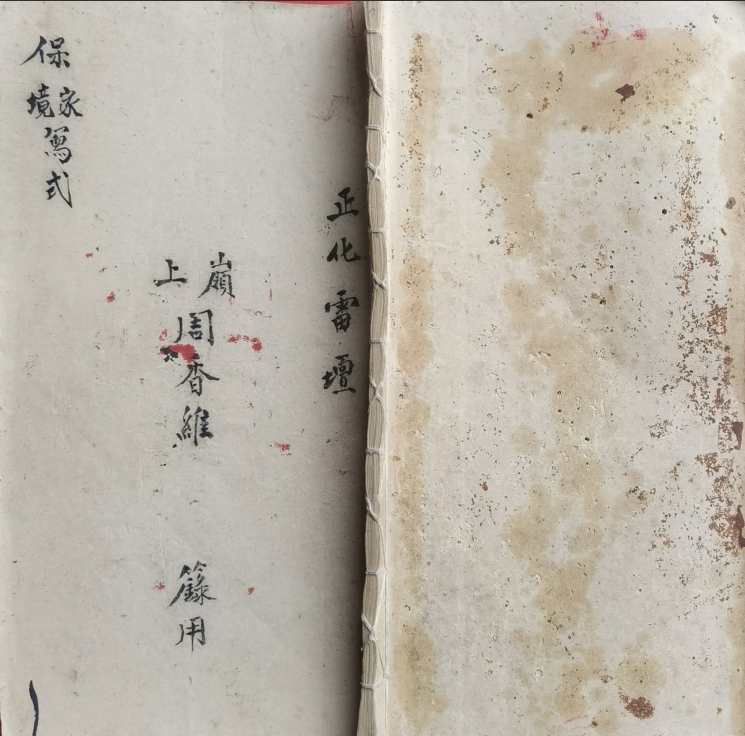 正化雷壇
嶺上
周香維
籙用
保家境篤式